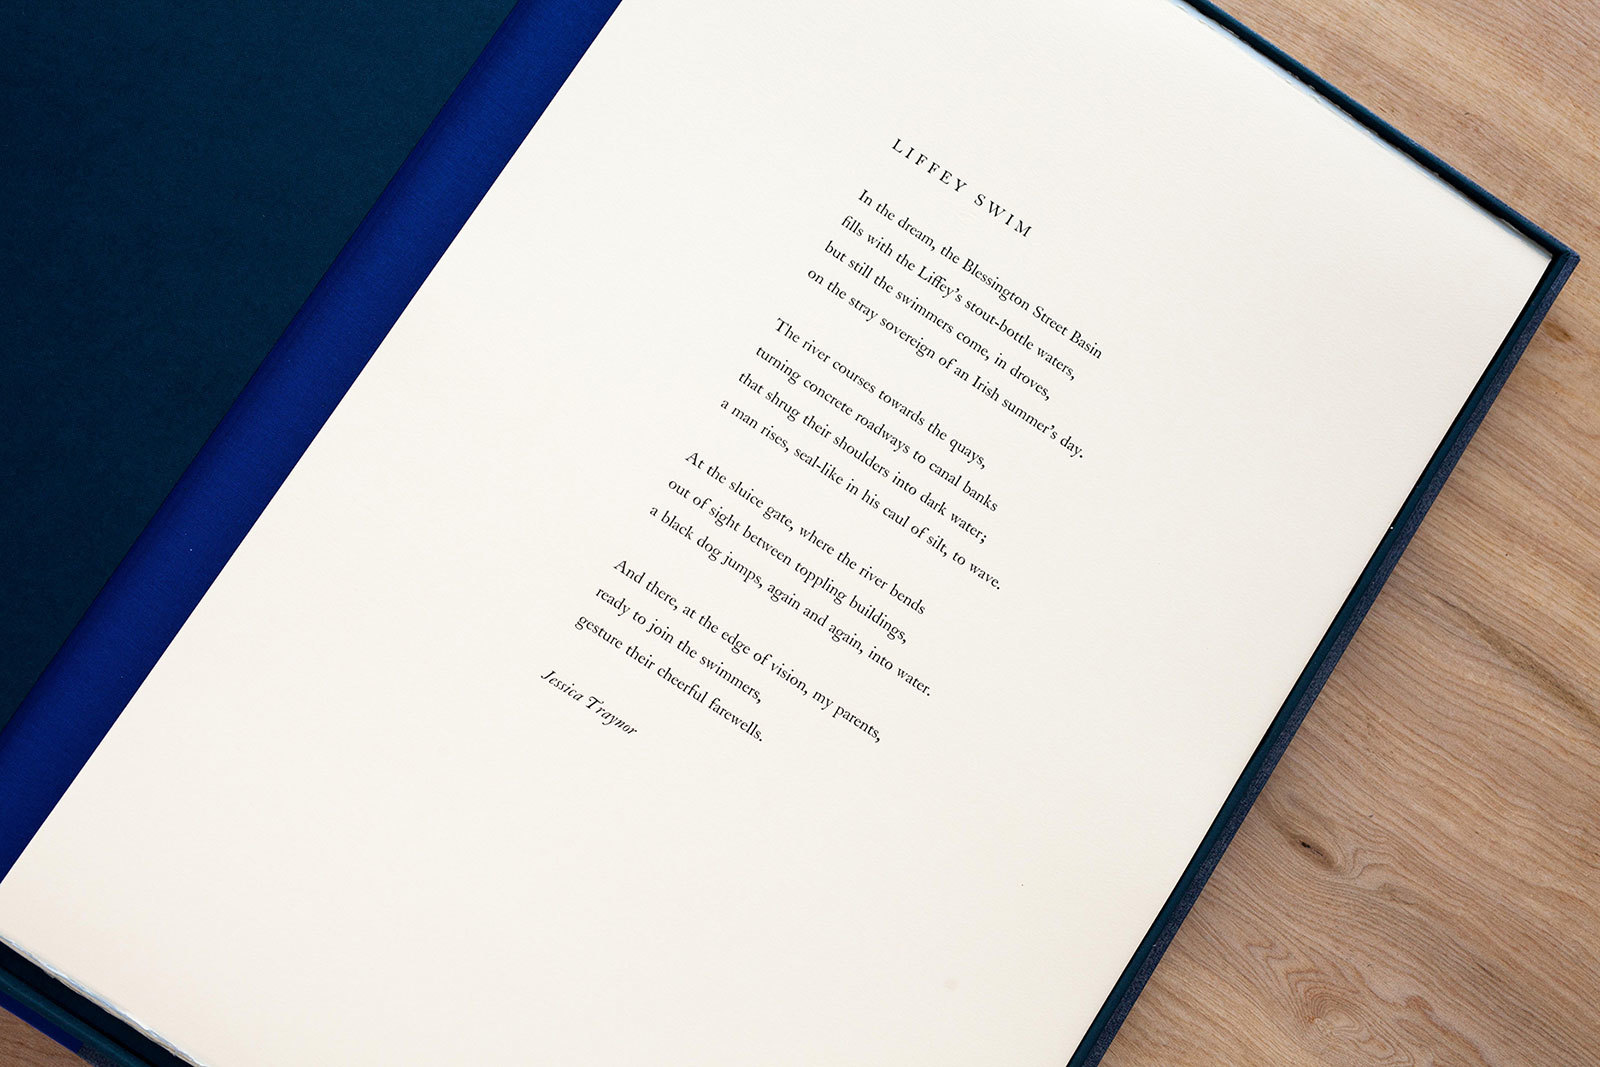 LIFFEY SWIM
In the dream, the Blessington Street Basin
fills with the Liffey’s stout-bottle waters,
but still the swimmers come, in droves,
on the stray sovereign of an Irish summer’s day.
The river courses towards the quays,
turning concrete roadways to canal banks
that shrug their shoulders into dark water;
a man rises, seal-like in his caul of silt, to wave.
At the sluice gate, where the river bends
out of sight between toppling buildings,
a black dog jumps, again and again, into water.
And there, at the edge of vision, my parents,
ready to join the swimmers,
gesture their cheerful farewells.
Jessica Traynor